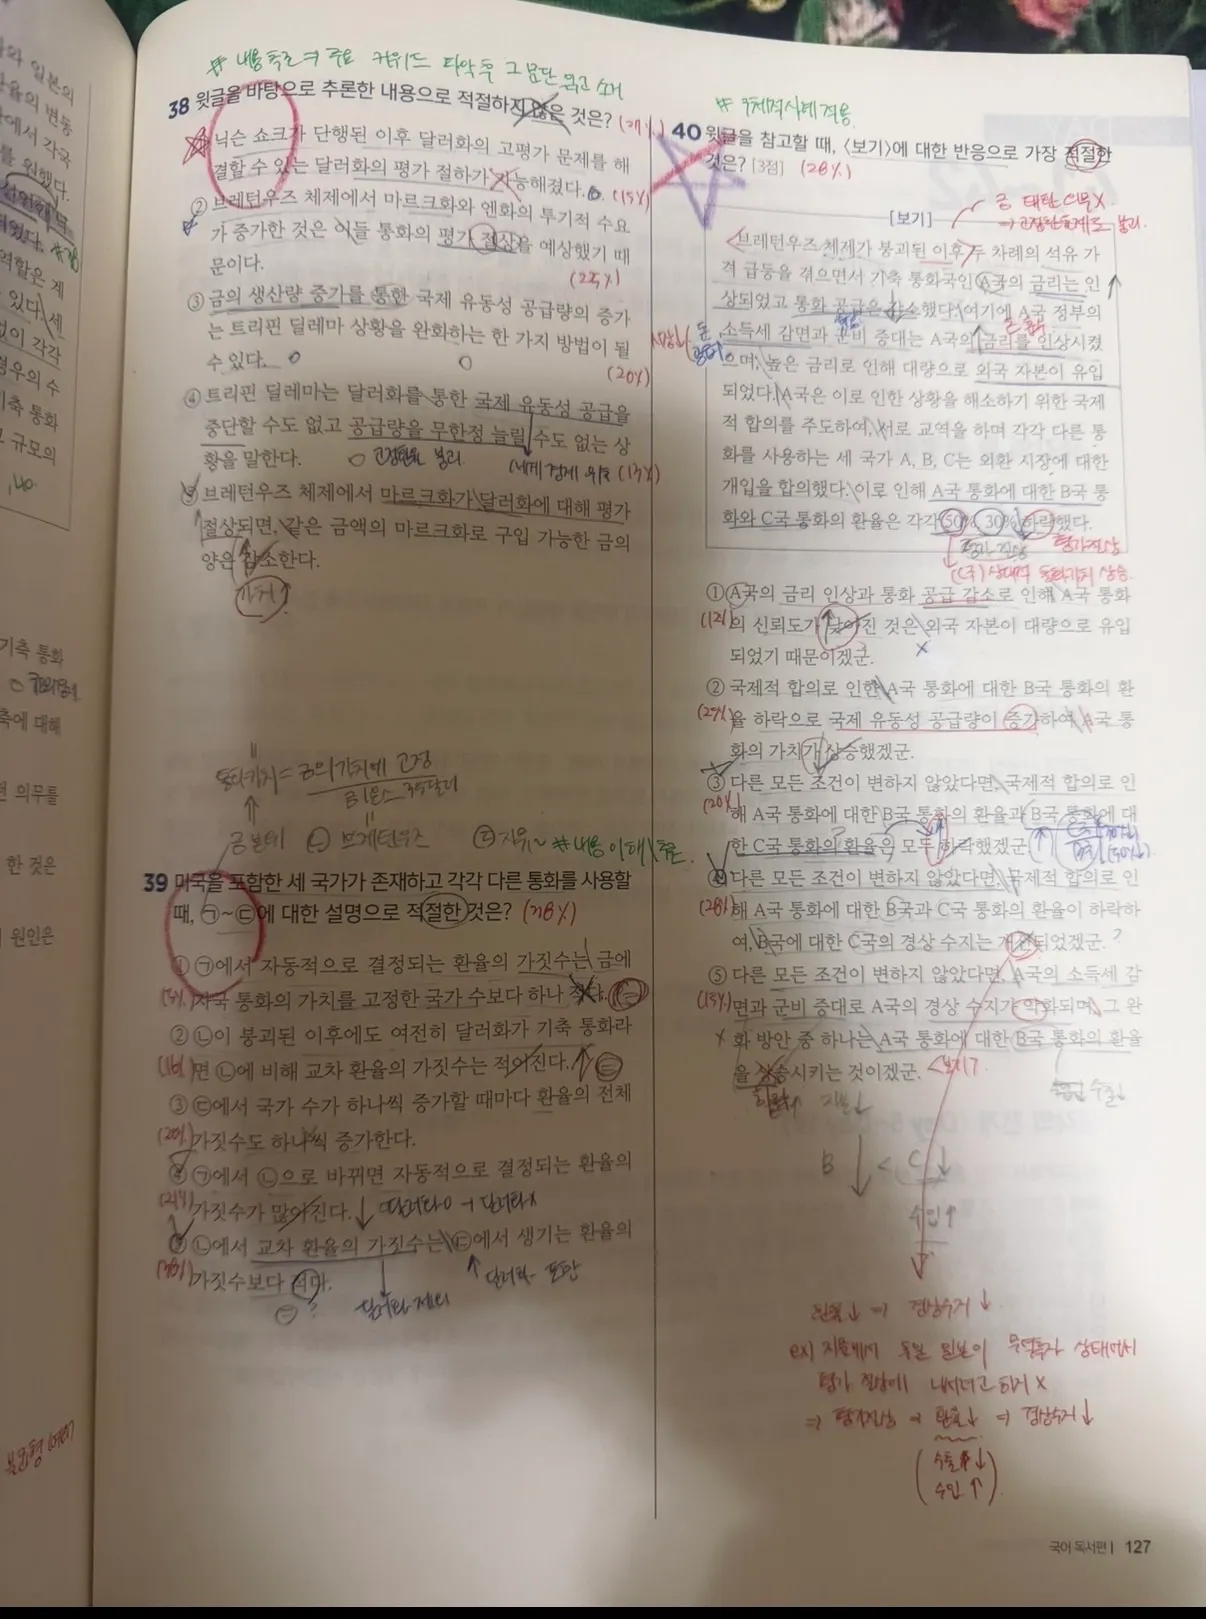 # 내용 축으로 주요 키워드 파악 후 그 문단 읽고 소거
38 윗글을 바탕으로 추론한 내용으로 적절하지 않은 것은? (27%)
① 닉슨 쇼크가 단행된 이후 달러화의 고평가 문제를 해
결할 수 있는 달러화의 평가 절하가 가능해졌다. (15%)
② 브레턴우즈 체제에서 마르크화와 엔화의 투기적 수요
가 증가한 것은 이들 통화의 평가 절상을 예상했기 때
문이다.
(25%)
③ 금의 생산량 증가를 통한 국제 유동성 공급량의 증가
는 트리핀 딜레마 상황을 완화하는 한 가지 방법이 될
수 있다.
(20%)
④ 트리핀 딜레마는 달러화를 통한 국제 유동성 공급을
중단할 수도 없고 공급량을 무한정 늘릴 수도 없는 상
황을 말한다.
(13%)
⑤ 브레턴우즈 체제에서 마르크화가 달러화에 대해 평가
절상되면, 같은 금액의 마르크화로 구입 가능한 금의
양은 감소한다.
가치↑
통화가치 = 금의 가치에 고정
금1온스 35달러
금본위 ㉡ 브레턴우즈 ㉢ 자유~ # 내용 이해\추론
39 미국을 포함한 세 국가가 존재하고 각각 다른 통화를 사용할
때, ㉠~㉢에 대한 설명으로 적절한 것은? (38%)
① ㉠에서 자동적으로 결정되는 환율의 가짓수는 금에
자국 통화의 가치를 고정한 국가 수보다 하나 적다.
② ㉡이 붕괴된 이후에도 여전히 달러화가 기축 통화라
(16%) 면 ㉡에 비해 교차 환율의 가짓수는 적어진다.
③ ㉢에서 국가 수가 하나씩 증가할 때마다 환율의 전체
(20%) 가짓수도 하나씩 증가한다.
④ ㉠에서 ㉡으로 바뀌면 자동적으로 결정되는 환율의
(21%) 가짓수가 많아진다. ↓ 달러화O → 달러화X
⑤ ㉡에서 교차 환율의 가짓수는 ㉢에서 생기는 환율의
(38%) 가짓수보다 적다.
달러화 제외
↑ 달러화 포함
# 구체적 사례 적용
40 윗글을 참고할 때, <보기>에 대한 반응으로 가장 적절한
것은? [3점] (28%)
[보기]
금 태환 의무X
브레턴우즈 체제가 붕괴된 이후 두 차례의 석유 가
격 급등을 겪으면서 기축 통화국인 A국의 금리는 인
상되었고 통화 공급은 감소했다. 여기에 A국 정부의
소득세 감면과 군비 증대는 A국의 금리를 인상시켰
으며, 높은 금리로 인해 대량으로 외국 자본이 유입
되었다. A국은 이로 인한 상황을 해소하기 위한 국제
적 합의를 주도하여, 서로 교역을 하며 각각 다른 통
화를 사용하는 세 국가 A, B, C는 외환 시장에 대한
개입을 합의했다. 이로 인해 A국 통화에 대한 B국 통
화와 C국 통화의 환율은 각각 50%, 30% 하락했다.
평가 절상
상대적 통화가치 상승
① A국의 금리 인상과 통화 공급 감소로 인해 A국 통화
(12%) 의 신뢰도가 낮아진 것은 외국 자본이 대량으로 유입
되었기 때문이겠군.
② 국제적 합의로 인한 A국 통화에 대한 B국 통화의 환
(25%) 율 하락으로 국제 유동성 공급량이 증가하여 A국 통
화의 가치가 상승했겠군.
③ 다른 모든 조건이 변하지 않았다면, 국제적 합의로 인
(20%) 해 A국 통화에 대한 B국 통화의 환율과 B국 통화에 대
한 C국 통화의 환율은 모두 하락했겠군.
④ 다른 모든 조건이 변하지 않았다면, 국제적 합의로 인
(28%) 해 A국 통화에 대한 B국과 C국 통화의 환율이 하락하
여, B국에 대한 C국의 경상 수지는 개선되었겠군.
⑤ 다른 모든 조건이 변하지 않았다면, A국의 소득세 감
(15%) 면과 군비 증대로 A국의 경상 수지가 악화되며, 그 완
화 방안 중 하나는 A국 통화에 대한 B국 통화의 환율
을 상승시키는 것이겠군.
B ↓ < C ↓
수입↑
환율↓ ⇒ 경상수지↓
ex) 지문에서 독일 일본이 무역흑자 상태에서
평가 절상에 나서려고 하지 X
⇒ 평가절상 → 환율↓ ⇒ 경상수지↓
수출↓
수입↑
국어 독서편 | 127